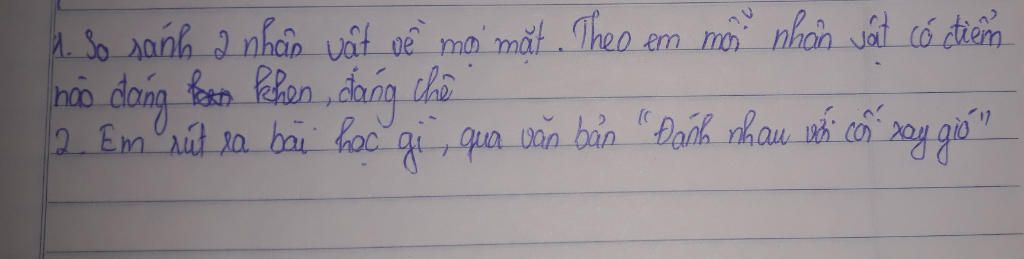 1. So sánh 2 nhân vật về mọi mặt. Theo em mỗi nhân vật có điểm
nào đáng khen, đáng chê
2. Em rút ra bài học gì, qua văn bản "Đánh nhau với cối xay gió"